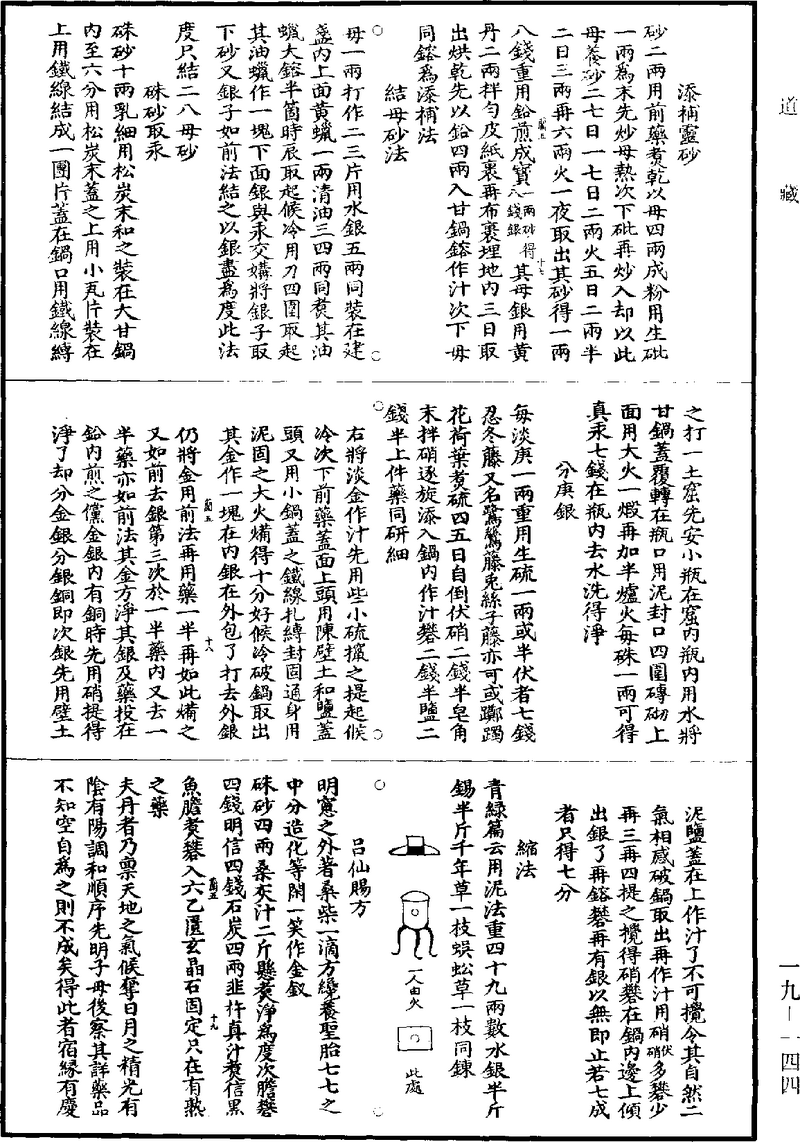 道藏
添補靈砂
砂二兩用前藥煮乾以母四兩成粉用生砒
一兩爲末先炒母熱次下砒再炒入却以此
母養砂二七日一七日二兩火五日二兩半
二日三兩再六兩火一夜取出其砂得一兩
八錢重用鉛煎成寶一兩砂得八錢銀其母銀用黄
丹二兩拌勻皮紙裹再布裹埋地内三日取
出烘乾先以鉛四兩入甘鍋鎔作汁次下母
同鎔爲添補法
結母砂法
母一兩打作二三片用水銀五兩同裝在建
盞内上面黄蠟一兩清油三四兩同煮其油
蠟大鎔半箇時辰取起候冷用刀四圍取起
其油蠟作一塊下面銀與汞交媾將銀子取
下砂又銀子如前法結之以銀盡爲度此法
度只結二八母砂
硃砂取汞
硃砂十兩乳細用松炭末和之裝在大甘鍋
内至六分用松炭末蓋之上用小瓦片裝在
上用鐵線結成一團片蓋在鍋口用鐵線縛
之打一土窑先安小瓶在窑内瓶内用水將
甘鍋蓋覆轉在瓶口用泥封口四圍磚砌上
面用大火一煅再加半爐火每硃一兩可得
真汞七錢在瓶内去水洗得淨
分庚銀
每淡庚一兩重用生硫一兩或半伏者七錢
忍冬藤又名鷺鷥藤兎絲子藤亦可或躑躅
花荷葉煮硫四五日自倒伏硝二錢半皂角
末拌硝逐旋添入鍋内作汁礬二錢半鹽二
錢半上件藥同研細
右將淡金作汁先用些小硫攛之提起候
冷次下前藥蓋面上頭用陳壁土和鹽蓋
頭又用小鍋蓋之鐵線扎縛封固通身用
泥固之大火煏得十分好候冷破鍋取出
其金作一塊在内銀在外包了打去外銀
仍將金用前法再用藥一半再如此煏之
又如前去銀第三次於一半藥内又去一
半藥亦如前法其金方淨其銀及藥投在
鉛内煎之儻金銀内有銅時先用硝提得
淨了却分金銀分銀銅即次銀先用壁土
泥鹽蓋在上作汁了不可攪令其自然二
氣相感破鍋取出再作汁用硝伏硝多礬少
再三再四提之攪得硝礬在鍋内邊上傾
出銀了再鎔礬再有銀以無即止若七成
者只得七分
縮法
青緑篇云用泥法重四十九兩數水銀半斤
錫半斤千年草一枝蜈蚣草一枝同鍊
一人由火
此處
吕仙賜方
明窻之外著桑柴一滴方纔養聖胎七七之
中分造化等閑一笑作金釵
硃砂四兩桑灰汁二斤懸煮淨爲度次膽礬
四錢明信四錢石炭四兩韭杵真汁煮信黑
魚膽煮礬入六乙匱玄晶石固定只在有熟
之藥
夫丹者乃禀天地之氣候奪日月之精光有
陰有陽調和順序先明子母後察其詳藥品
不知空自爲之則不成矣得此者宿縁有慶
一九—一四四